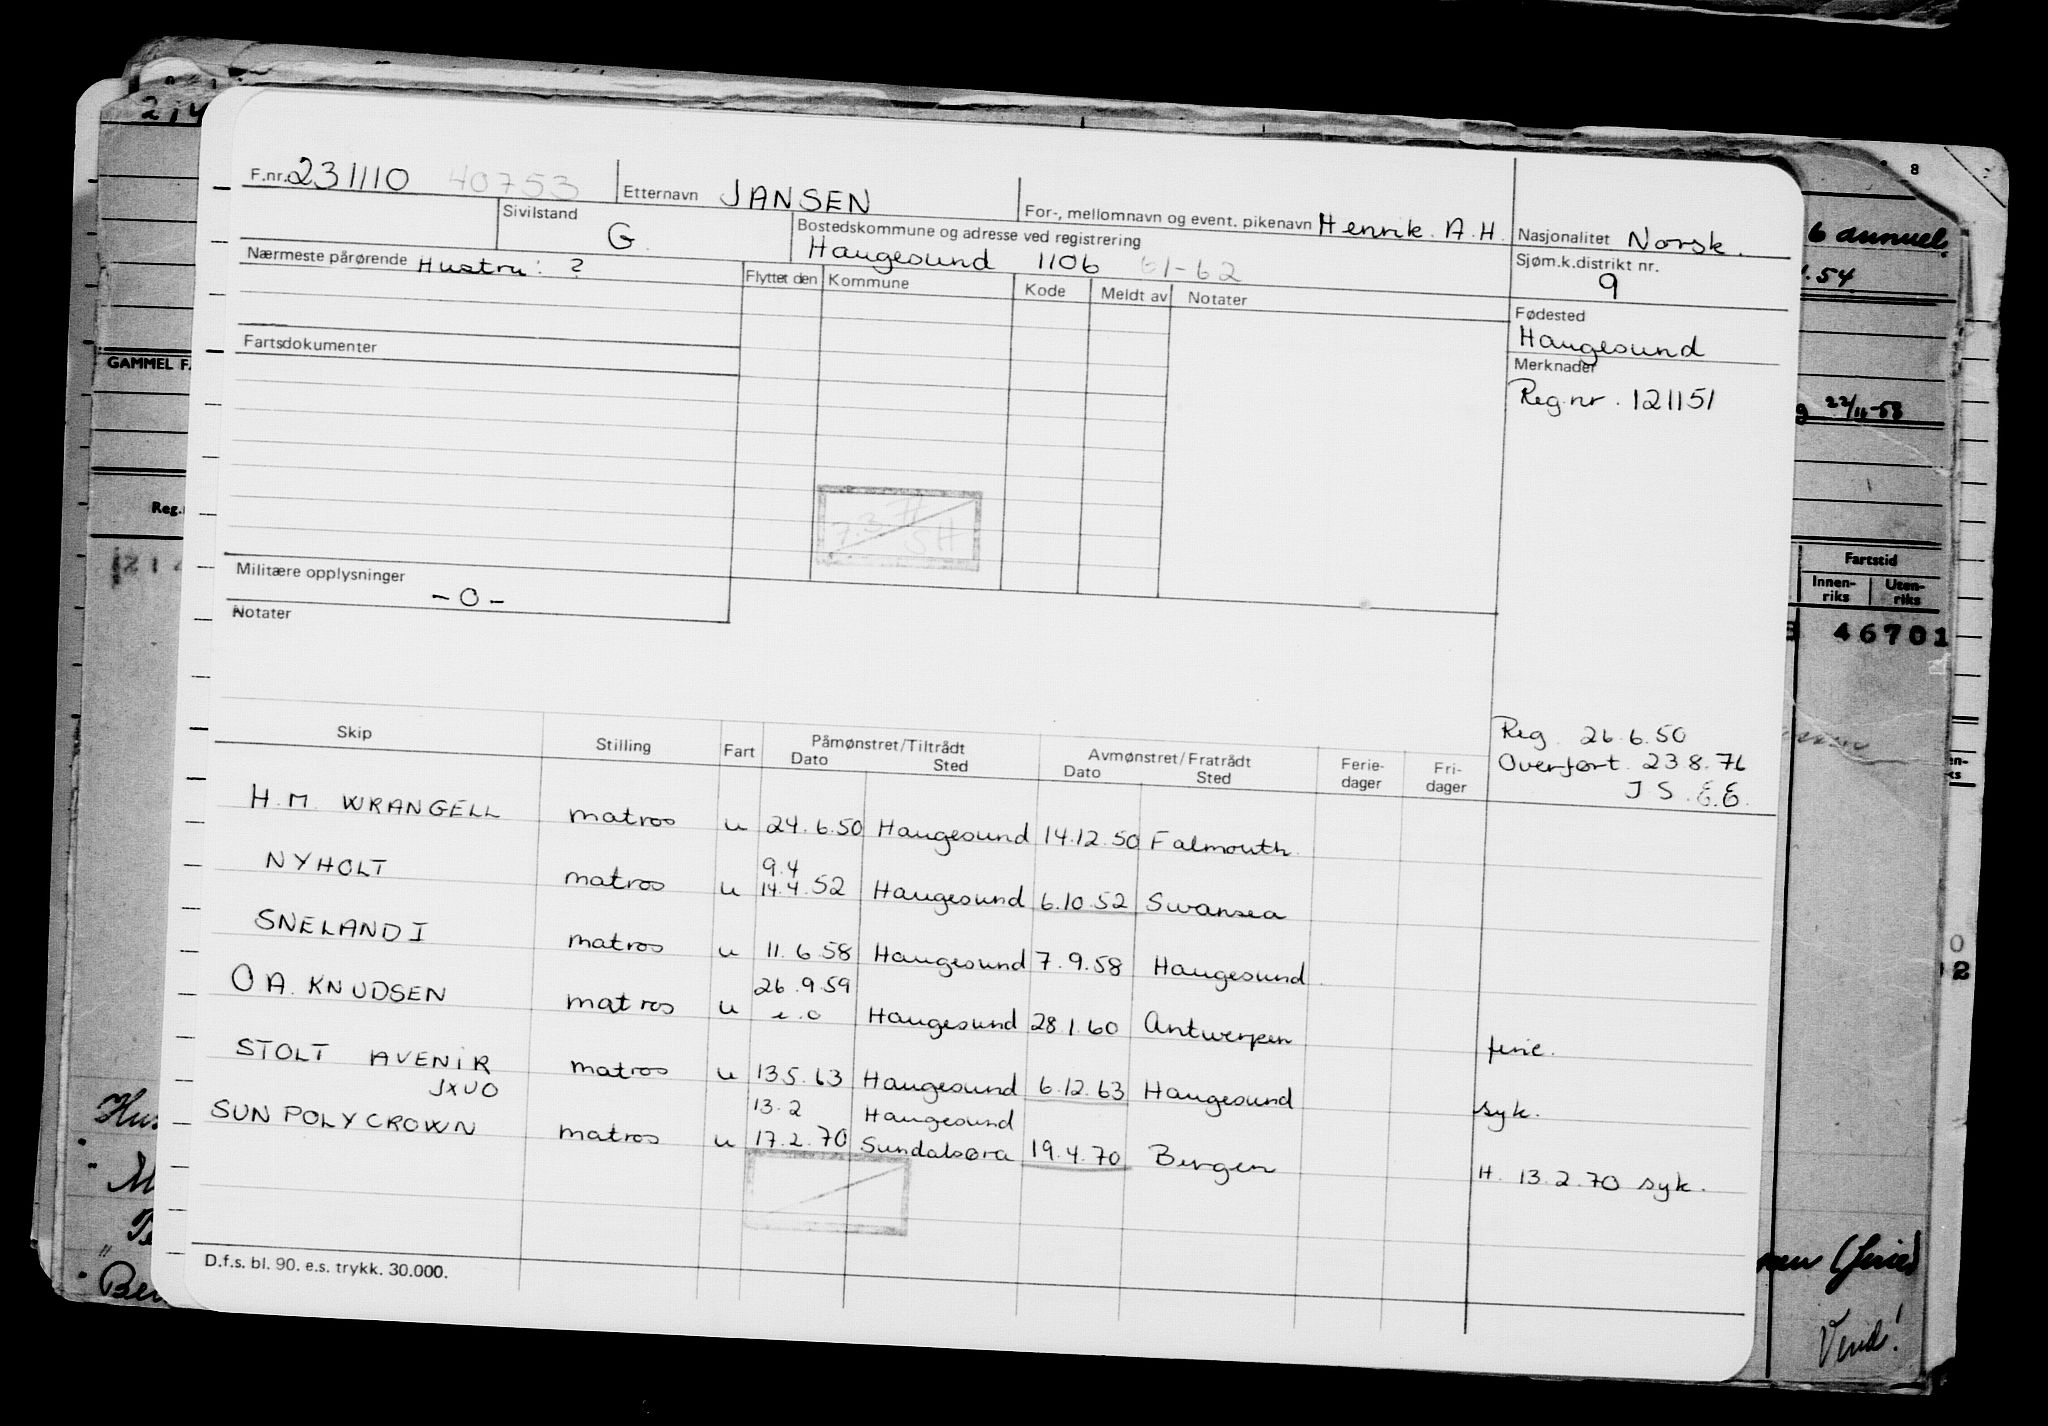 F.nr. 231110 40753 Etternavn JANSEN For-, mellomnavn og event. pikenavn Henrik. A.H. Nasjonalitet Norsk.
Sivilstand G. Bostedskommune og adresse ved registrering Haugesund 1106 61-62 Sjøm.k.distrikt nr. 9
Nærmeste pårørende Hustru: ? Flyttet den Kommune Kode Meldt av Notater
Fødested
Haugesund
Fartsdokumenter
Merknader
Reg.nr. 121151
7.3.71
SH
Militære opplysninger
- 0 -
Notater
Reg. 26.6.50
Overført. 23.8.76
J S. E.E.
Skip Stilling Fart Påmønstret/Tiltrådt Dato Sted Avmønstret/Fratrådt Dato Sted Ferie-dager Fri-dager
H.M. WRANGELL matros u 24.6.50 Haugesund 14.12.50 Falmouth.
9.4
NYHOLT matros u 14.4.52 Haugesund 6.10.52 Swansea
SNELAND I matros u 11.6.58 Haugesund 7.9.58 Haugesund
26.9.59
O A. KNUDSEN matros u e.o Haugesund 28.1.60 Antwerpen ferie.
STOLT AVENIR matros u 13.5.63 Haugesund 6.12.63 Haugesund syk.
JXUO
13.2 Haugesund
SUN POLYCROWN matros u 17.2.70 Sundalsøra 19.4.70 Bergen H. 13.2.70 syk.
D.f.s. bl. 90. e.s. trykk. 30.000.
GAMMEL
8
.54
22/11-53
Fartstid
Innen-riks Uten-riks
46701
Vend!